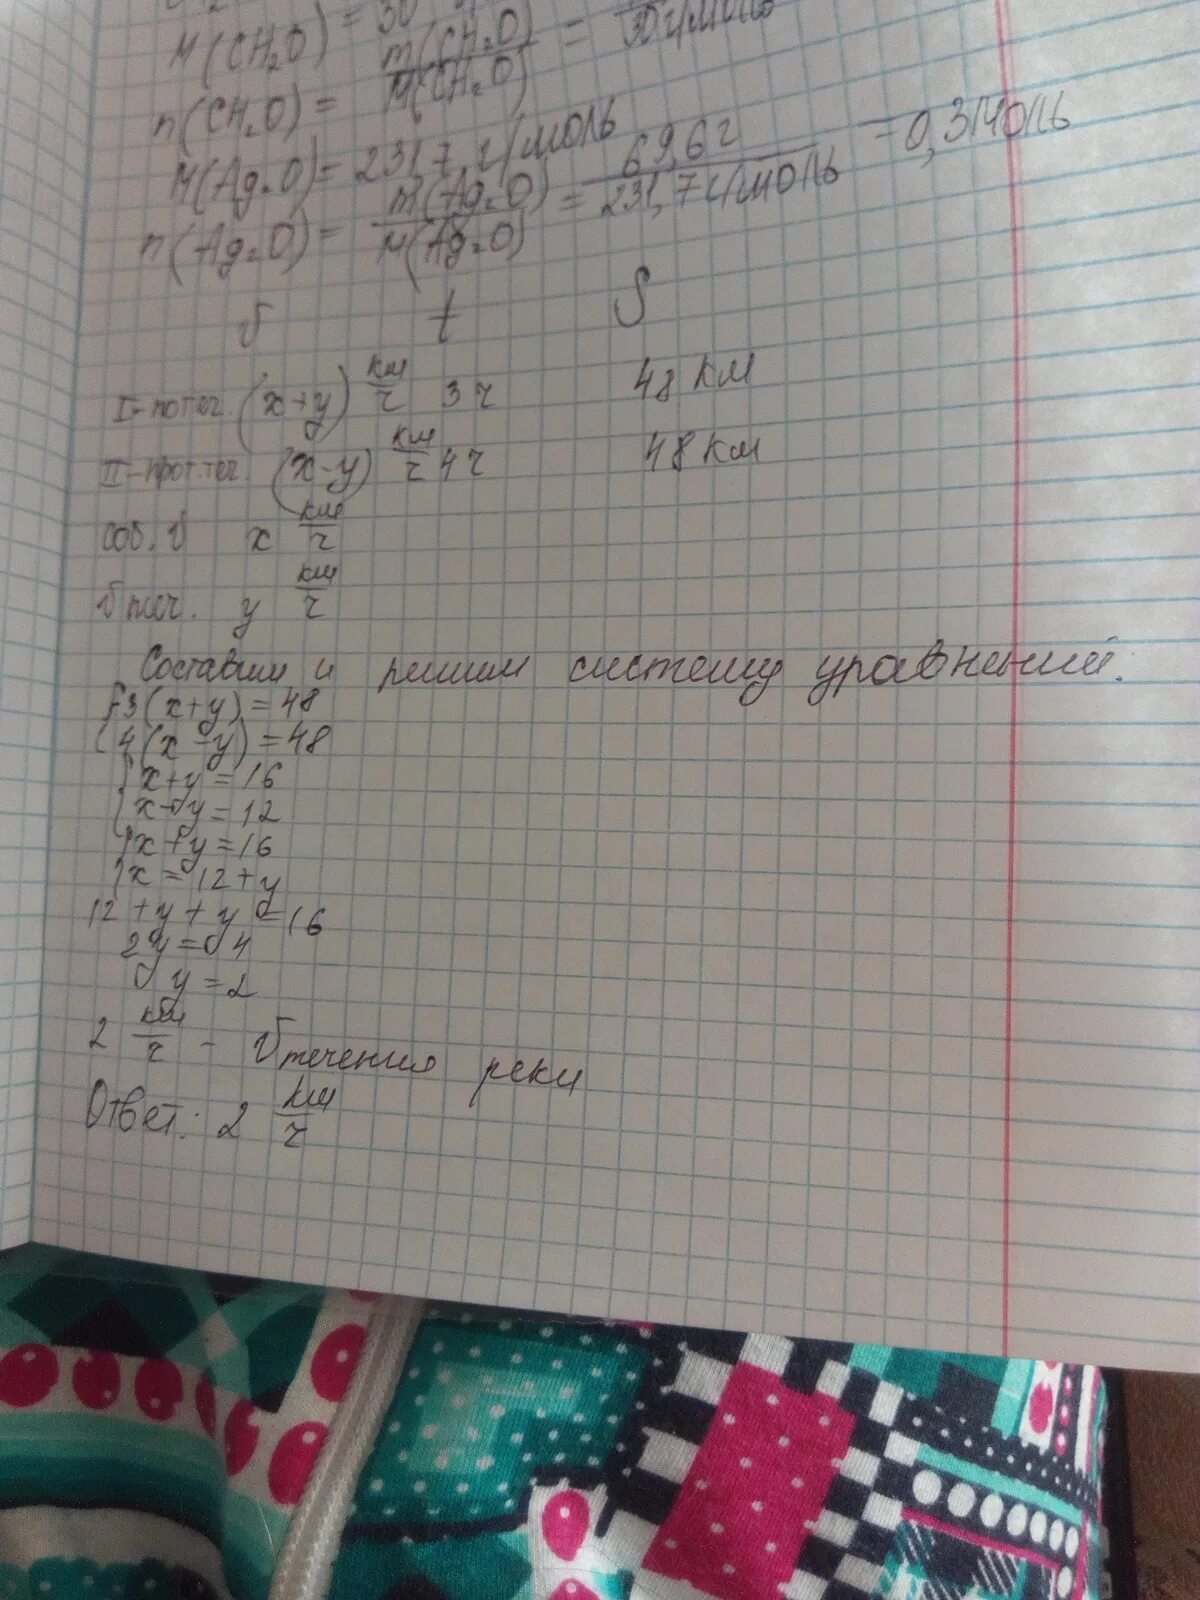 M(CH₂O) = 30
n(CH₂O) = m(CH₂O) / M(CH₂O) = / 30 г/моль
M(Ag₂O) = 231,7 г/моль
n(Ag₂O) = m(Ag₂O) / M(Ag₂O) = 69,6 г / 231,7 г/моль = 0,3 моль
v t S
I-по теч. (x+y) км/ч 3 ч 48 км
II-прот. теч. (x-y) км/ч 4 ч 48 км
соб. v x км/ч
v теч. y км/ч
Составим и решим систему уравнений.
{3(x+y)=48
{4(x-y)=48
{x+y=16
{x-y=12
{x+y=16
{x=12+y
12+y+y=16
2y=4
y=2
2 км/ч - v течения реки
Ответ: 2 км/ч